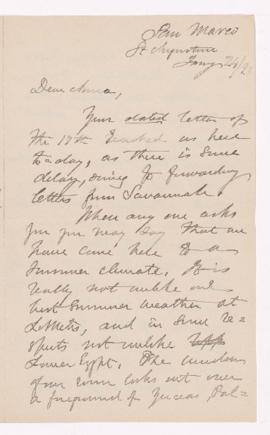 San Marco
St Augustine
Dear Anna,
Your dated letter of
the 17th reached us here
today, as there is some
delay, owing to forwarding
letters from Savannah.
When any one asks
you you may say that we
have come here to a
summer climate. It is
really not unlike our
best summer weather at
and in some re=
spects not unlike Upp
Lower Egypt. The windows
of our room looks out over
a foreground of Yuccas Pal=